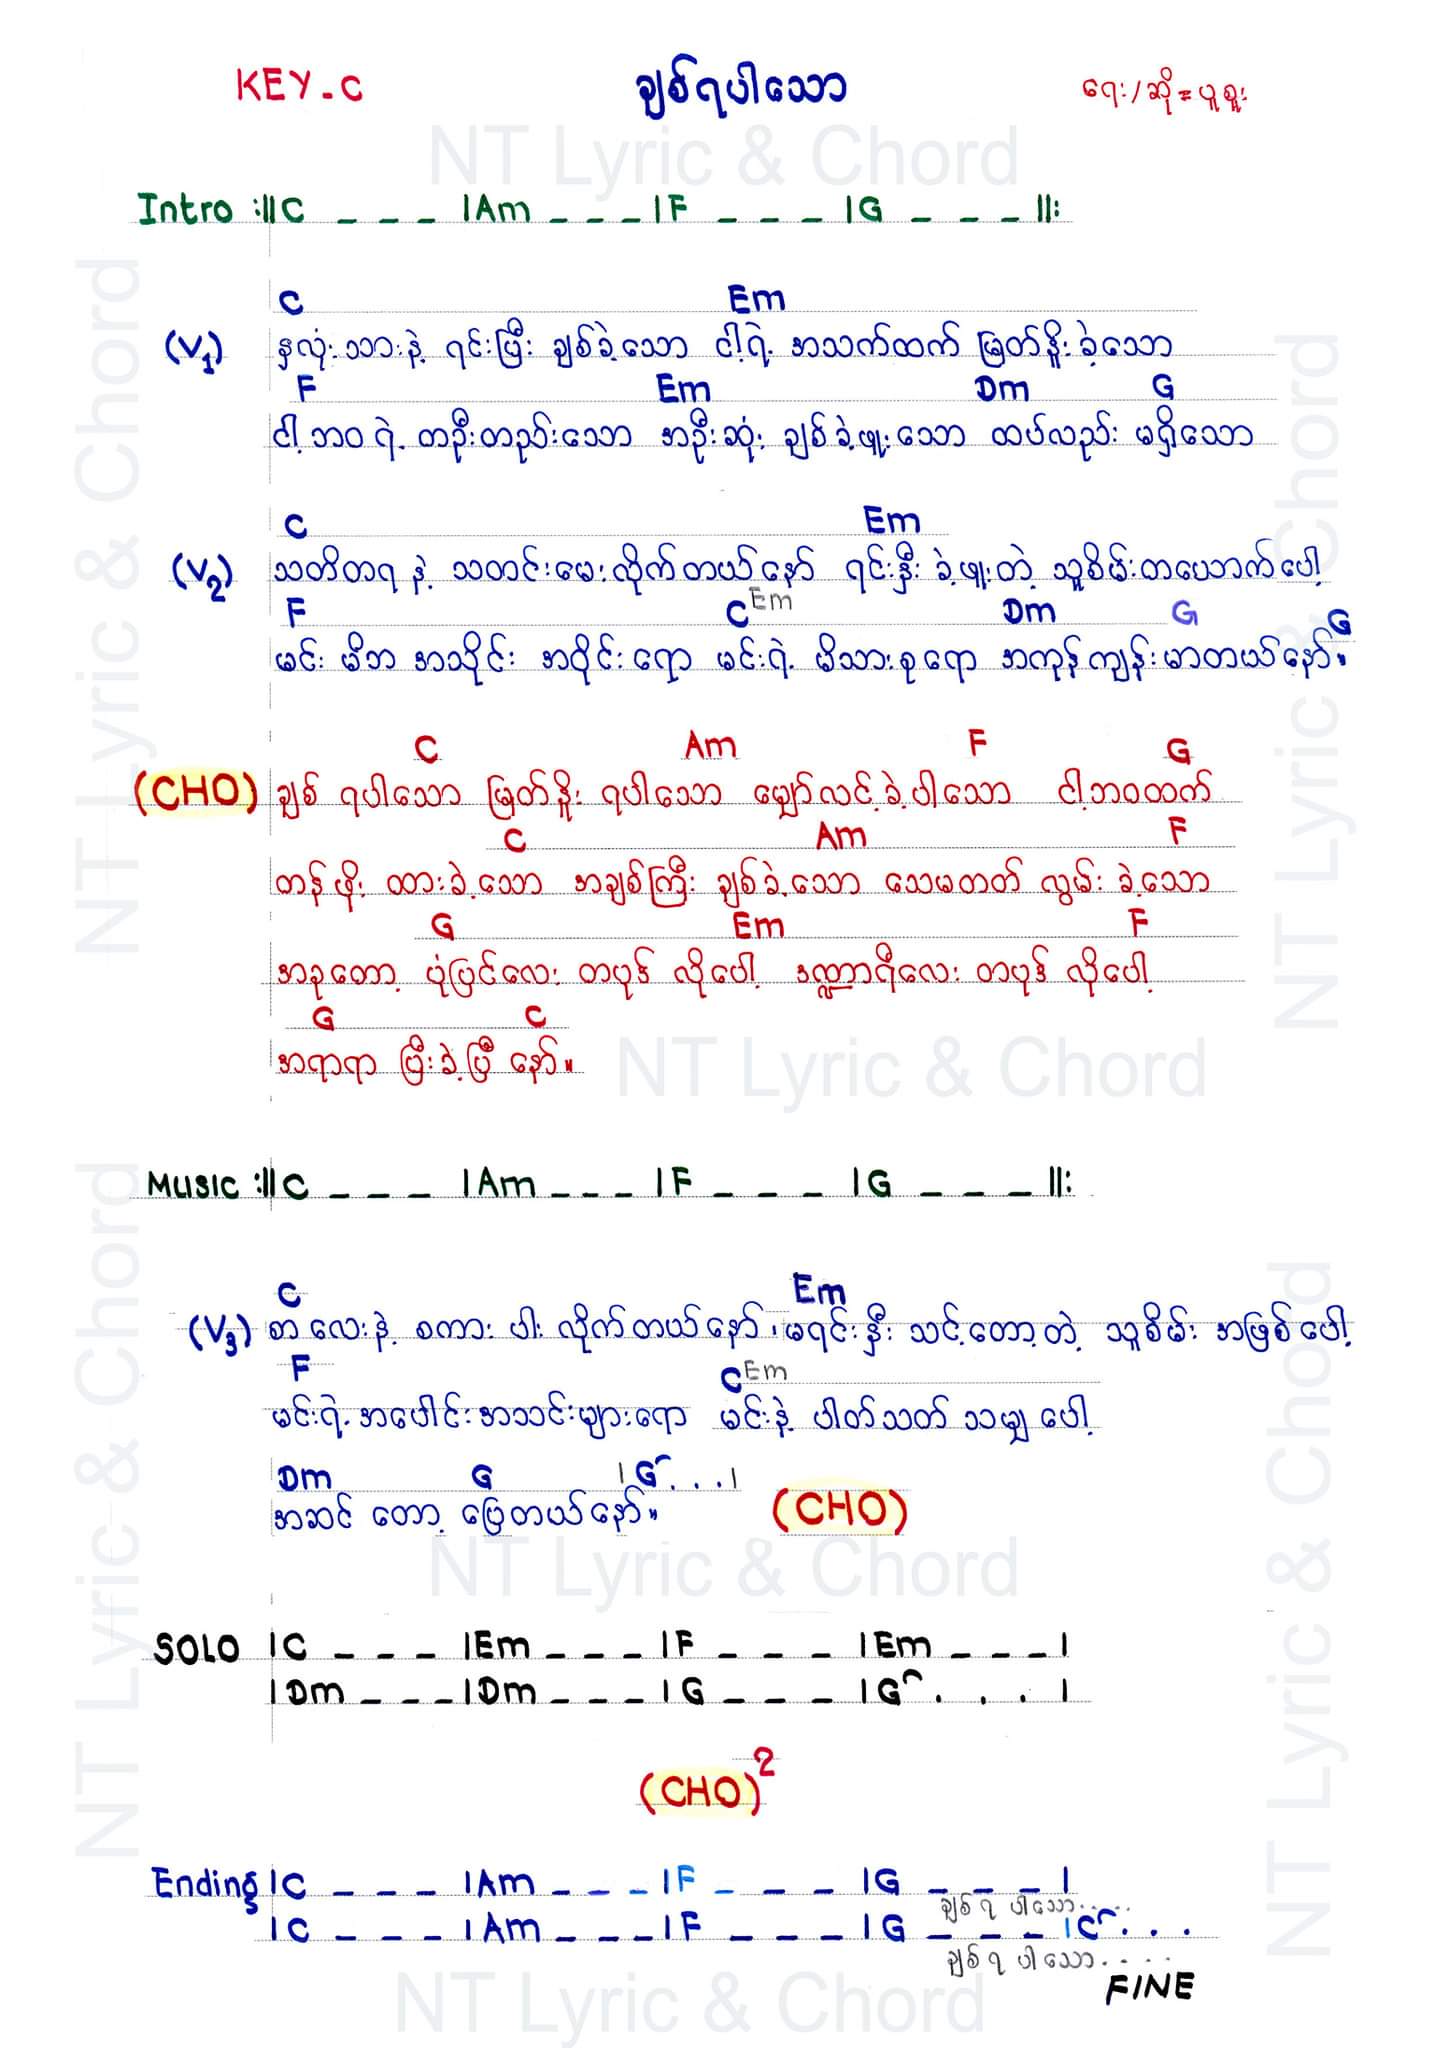 KEY-C ချစ်ရပါသော ရေး/ဆို = ယူစူး
NT Lyric & Chord
Intro :||C _ _ _ |Am _ _ _ |F _ _ _ |G _ _ _ ||:
C Em
(V1) နှလုံးသားနဲ့ ရင်းပြီး ချစ်ခဲ့သော ငါ့ရဲ့ အသက်ထက် မြတ်နိုးခဲ့သော
F Em Dm G
ငါ့ဘဝရဲ့ တဦးတည်းသော အဦးဆုံး ချစ်ခဲ့ဖူးသော ထပ်လည်း မရှိသော
C Em
(V2) သတိတရနဲ့ သတင်းမေးလိုက်တယ်နော် ရင်းနှီးခဲ့ဖူးတဲ့ သူစိမ်းတယောက်ပေါ့
F C Em Dm G G
မင်း မိဘ အသိုင်း အဝိုင်းရော မင်းရဲ့ မိသားစုရော အကုန်ကျန်းမာတယ်နော်။
C Am F G
(CHO) ချစ် ရပါသော မြတ်နိုး ရပါသော မျှော်လင့်ခဲ့ပါသော ငါ့ဘဝထက်
C Am F
တန်ဖိုး ထားခဲ့သော အချစ်ကြီး ချစ်ခဲ့သော သေမတတ် လွမ်းခဲ့သော
G Em F
အခုတော့ ပုံပြင်လေး တပုဒ် လိုပေါ့ ဒဏ္ဍာရီလေး တပုဒ် လိုပေါ့
G C
အရာရာ ပြီးခဲ့ပြီ နော်။
NT Lyric & Chord
MUSIC :||C _ _ _ |Am _ _ _ |F _ _ _ |G _ _ _ ||:
C Em
(V3) စာလေးနဲ့ စကား ပါးလိုက်တယ်နော်၊ မရင်းနှီး သင့်တော့တဲ့ သူစိမ်း အဖြစ်ပေါ့
F C Em
မင်းရဲ့ အပေါင်းအသင်းများရော မင်းနဲ့ ပါတ်သတ် သမျှပေါ့
Dm G |G . . . |
အဆင် တော့ ပြေတယ်နော်။ (CHO)
NT Lyric & Chord
SOLO |C _ _ _ |Em _ _ _ |F _ _ _ |Em _ _ _ |
|Dm _ _ _ |Dm _ _ _ |G _ _ _ |G . . . |
(CHO)2
Ending |C _ _ _ |Am _ _ _ |F _ _ _ |G _ _ _ |
ချစ်ရ ပါသော.....
|C _ _ _ |Am _ _ _ |F _ _ _ |G _ _ _ |C . . .
ချစ်ရ ပါသော.....
FINE
NT Lyric & Chord
NT Lyric & Chord
NT Lyric & Chord
NT Lyric & Chord
NT Lyric & Chord